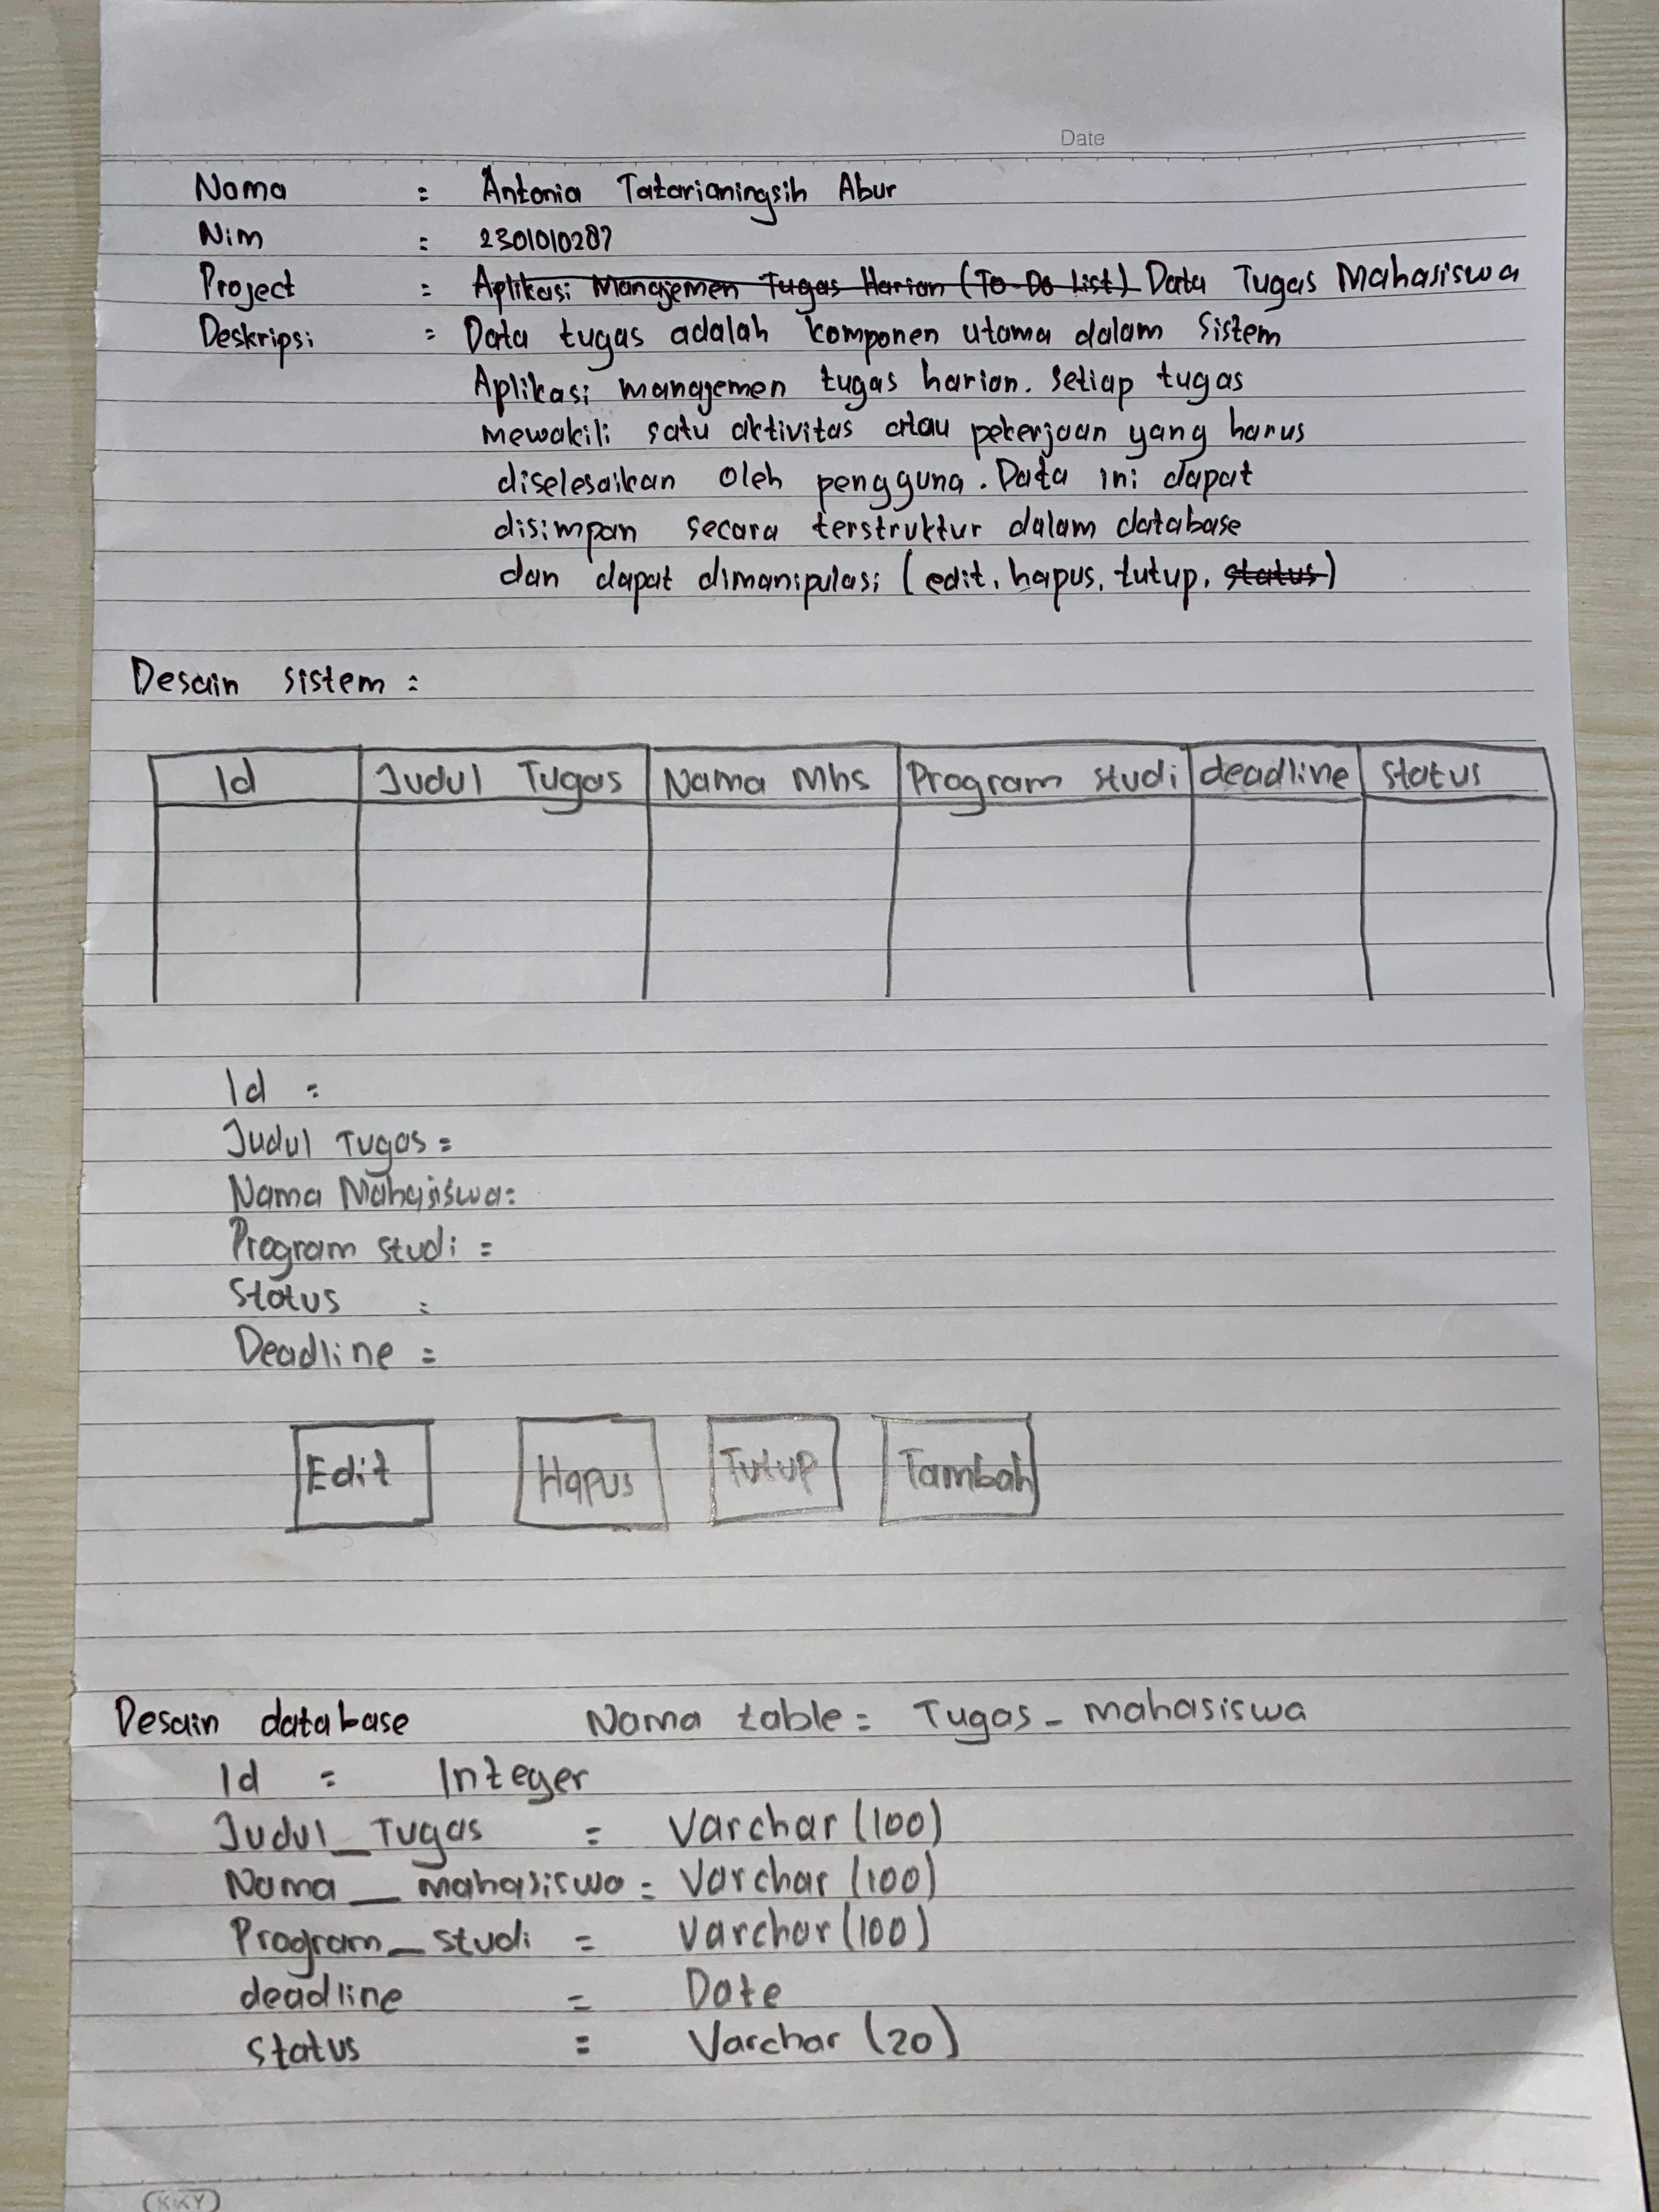 Date
Nama : Antonia Tatarianingsih Abur
Nim : 2301010287
Project : Aplikasi Manajemen Tugas Harian (To-Do List) Data Tugas Mahasiswa
Deskripsi : Data tugas adalah komponen utama dalam sistem
Aplikasi manajemen tugas harian. Setiap tugas
mewakili satu aktivitas atau pekerjaan yang harus
diselesaikan oleh pengguna. Data ini dapat
disimpan secara terstruktur dalam database
dan dapat dimanipulasi (edit, hapus, tutup, status)
Desain sistem :
Id Judul Tugas Nama Mhs Program studi deadline status
Id :
Judul Tugas :
Nama Mahasiswa :
Program studi :
Status :
Deadline :
Edit Hapus Tutup Tambah
Desain database Nama table : Tugas_mahasiswa
Id : Integer
Judul_Tugas : Varchar (100)
Nama_mahasiswa : Varchar (100)
Program_studi : Varchar (100)
deadline : Date
status : Varchar (20)
KKY